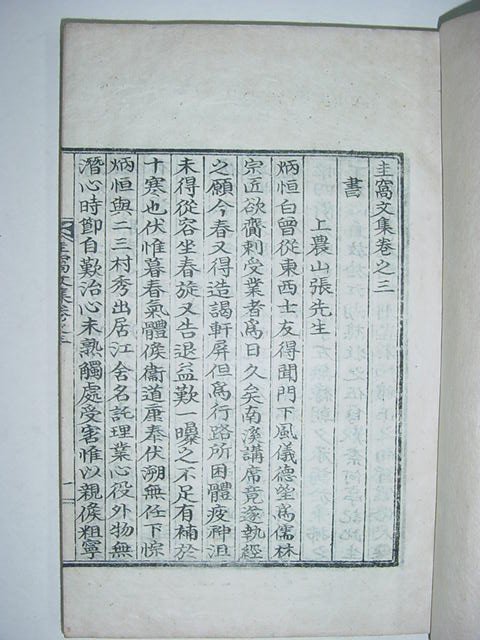 圭窩文集卷之三
書
上農山張先生
炳恒白曾從東西士友得聞門下風儀德望爲儒林
宗匠欲齎刺受業者爲日久矣南溪講席竟遂執經
之願今春又得造謁軒屏但爲行路所困體疲神沮
未得從容坐春旋又告退益歎一曝之不足有補於
十寒也伏惟暮春氣體候衛道康奉伏溯無任下悰
炳恒與二三村秀出居江舍名託理業心役外物無
潛心時節自歎治心未熟觸處受害惟以親候粗寧
圭窩文集卷之三
一